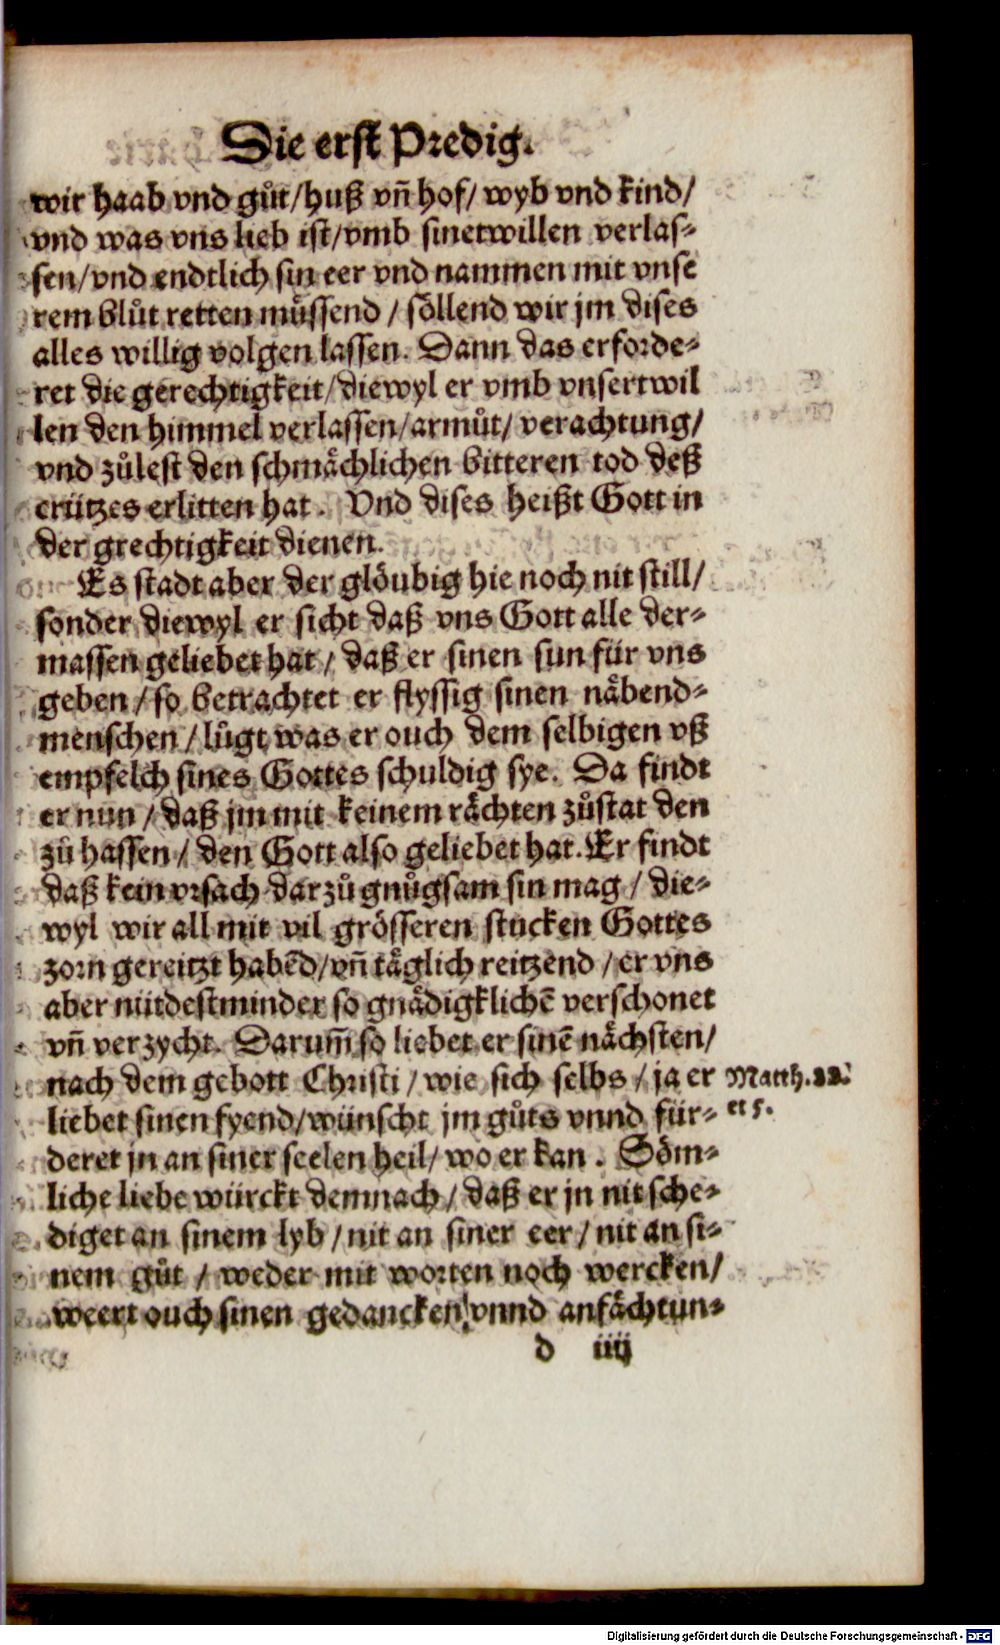 Die erst Predig.
wir haab vnd gůt/huß vñ hof/ wyb vnd kind/
vnd was vns lieb ist/vmb sinetwillen verlas-
sen/vnd endtlich sin eer vnd nammen mit vnse
rem blůt retten muͤssend / soͤllend wir jm dises
alles willig volgen lassen. Dann das erforde-
ret die gerechtigkeit/diewyl er vmb vnsertwil
len den himmel verlassen/armůt/ verachtung/
vnd zůlest den schmaͤchlichen bitteren tod deß
crützes erlitten hat. Vnd dises heißt Gott in
der grechtigkeit dienen.
Es stadt aber der gloͤubig hie noch nit still/
sonder diewyl er sicht daß vns Gott alle der-
massen geliebet hat / daß er sinen sun für vns
geben / so betrachtet er flyssig sinen naͤbend-
menschen / lůgt was er ouch dem selbigen vß
empfelch sines Gottes schuldig sye. Da findt
er nun / daß jm mit keinem raͤchten zůstat den
zů hassen / den Gott also geliebet hat. Er findt
daß kein vrsach darzů gnůgsam sin mag / die-
wyl wir all mit vil groͤsseren stucken Gottes
zorn gereitzt habẽd/vñ taͤglich reitzend / er vns
aber nütdestminder so gnaͤdigklichẽ verschonet
vñ verzycht. Darum̃ so liebet er sinẽ naͤchsten/
nach dem gebott Christi / wie sich selbs / ja er
Matth. 22.
liebet sinen fyend/wünscht jm gůts vnnd für-
et 5.
deret jn an siner seelen heil/ wo er kan. Soͤm-
liche liebe würckt demnach / daß er jn nit sche-
diget an sinem lyb / nit an siner eer / nit an si-
nem gůt / weder mit worten noch wercken/
weert ouch sinen gedancken vnnd anfaͤchtun-
d iiij
Digitalisierung gefördert durch die Deutsche Forschungsgemeinschaft - DFG